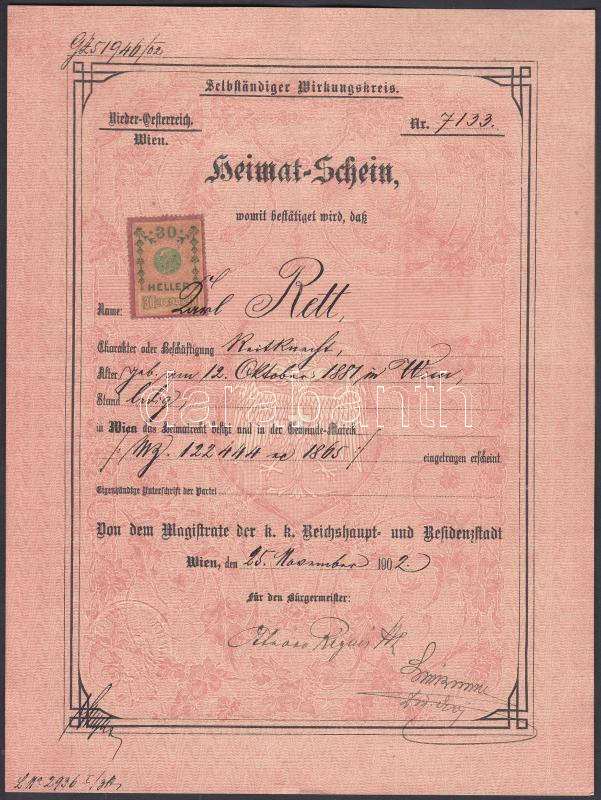 GZ 51946/02
Selbständiger Wirkungskreis.
Nieder-Oesterreich.
Wien.
Nr. 7133.
Heimat-Schein,
womit bestätiget wird, daß
30
HELLER
Name: Karl Rett,
Charakter oder Beschäftigung Reitknecht,
Alter geb. am 12. Oktober 1881 in Wien,
Stand ledig,
in Wien das Heimatrecht besitzt und in der Gemeinde-Matrik
/: WZ. 122444 ex 1865 :/ eingetragen erscheint.
Eigenhändige Unterschrift der Partei
Von dem Magistrate der k. k. Reichshaupt- und Residenzstadt
Wien, den 25. November 1902.
Für den Bürgermeister:
darabanth